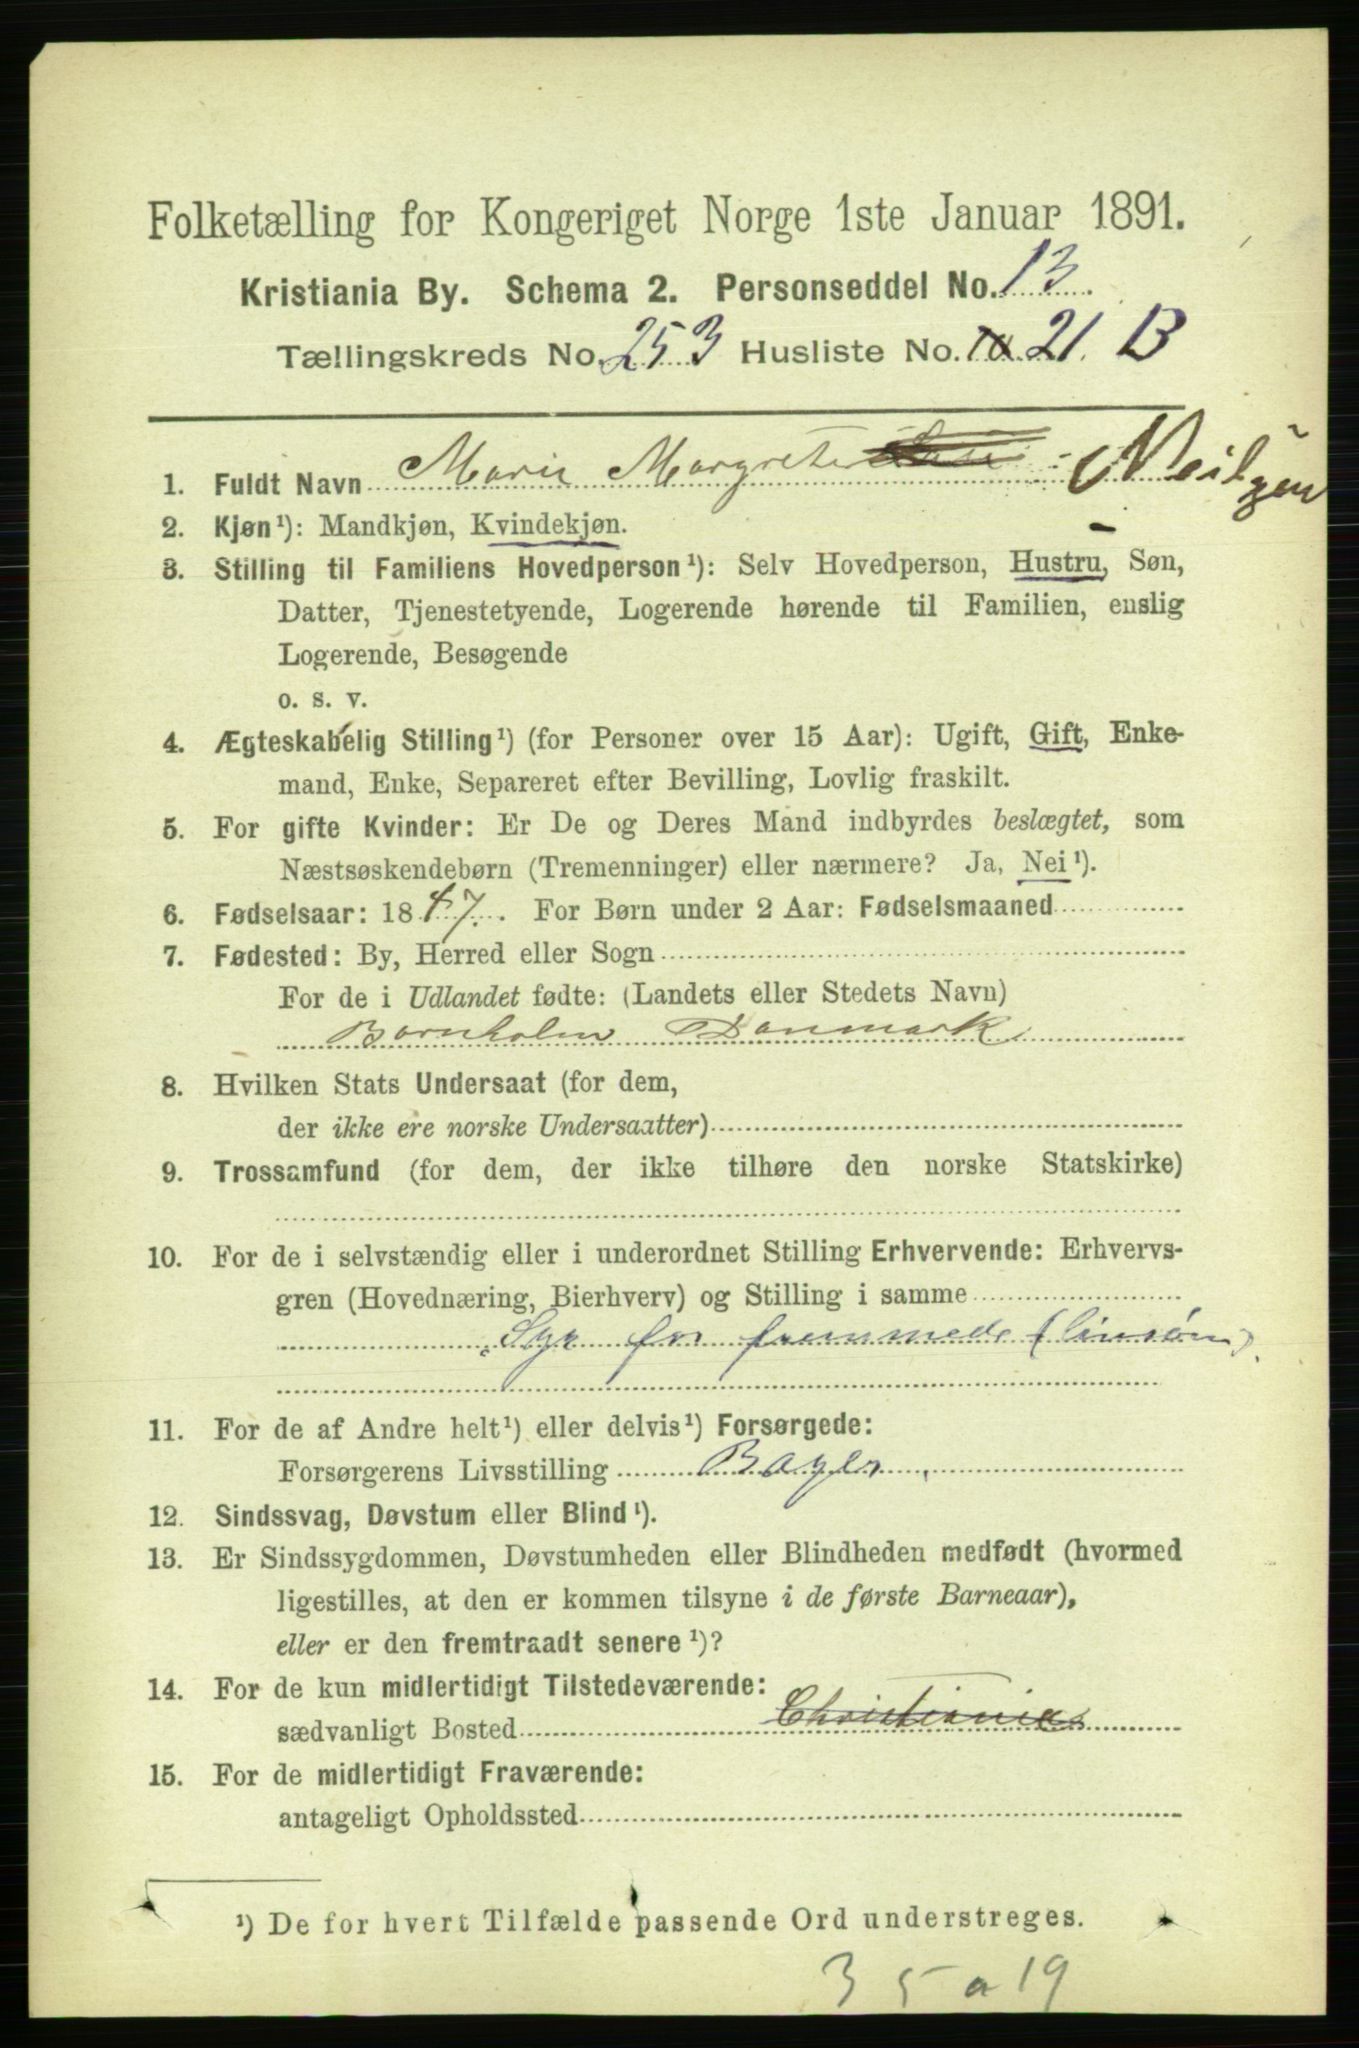 Folketælling for Kongeriget Norge 1ste Januar 1891.
Kristiania By. Schema 2. Personseddel No. 13.
Tællingskreds No. 253 Husliste No. 21. B
1. Fuldt Navn Marie Margrete
2. Kjøn¹): Mandkjøn, Kvindekjøn.
3. Stilling til Familiens Hovedperson¹): Selv Hovedperson, Hustru, Søn,
Datter, Tjenestetyende, Logerende hørende til Familien, enslig
Logerende, Besøgende
o. s. v.
4. Ægteskabelig Stilling¹) (for Personer over 15 Aar): Ugift, Gift, Enke-
mand, Enke, Separeret efter Bevilling, Lovlig fraskilt.
5. For gifte Kvinder: Er De og Deres Mand indbyrdes beslægtet, som
Næstsøskendebørn (Tremenninger) eller nærmere? Ja, Nei¹).
6. Fødselsaar: 1847. For Børn under 2 Aar: Fødselsmaaned
7. Fødested: By, Herred eller Sogn
For de i Udlandet fødte: (Landets eller Stedets Navn)
Bornholm Danmark
8. Hvilken Stats Undersaat (for dem,
der ikke ere norske Undersaatter)
9. Trossamfund (for dem, der ikke tilhøre den norske Statskirke)
10. For de i selvstændig eller i underordnet Stilling Erhvervende: Erhvervs-
gren (Hovednæring, Bierhverv) og Stilling i samme
Syr for fremmede (linsøm).
11. For de af Andre helt¹) eller delvis¹) Forsørgede:
Forsørgerens Livsstilling Bager.
12. Sindssvag, Døvstum eller Blind¹).
13. Er Sindssygdommen, Døvstumheden eller Blindheden medfødt (hvormed
ligestilles, at den er kommen tilsyne i de første Barneaar),
eller er den fremtraadt senere¹)?
14. For de kun midlertidigt Tilstedeværende:
sædvanligt Bosted Christiania
15. For de midlertidigt Fraværende:
antageligt Opholdssted
¹) De for hvert Tilfælde passende Ord understreges.
3 5 a 19